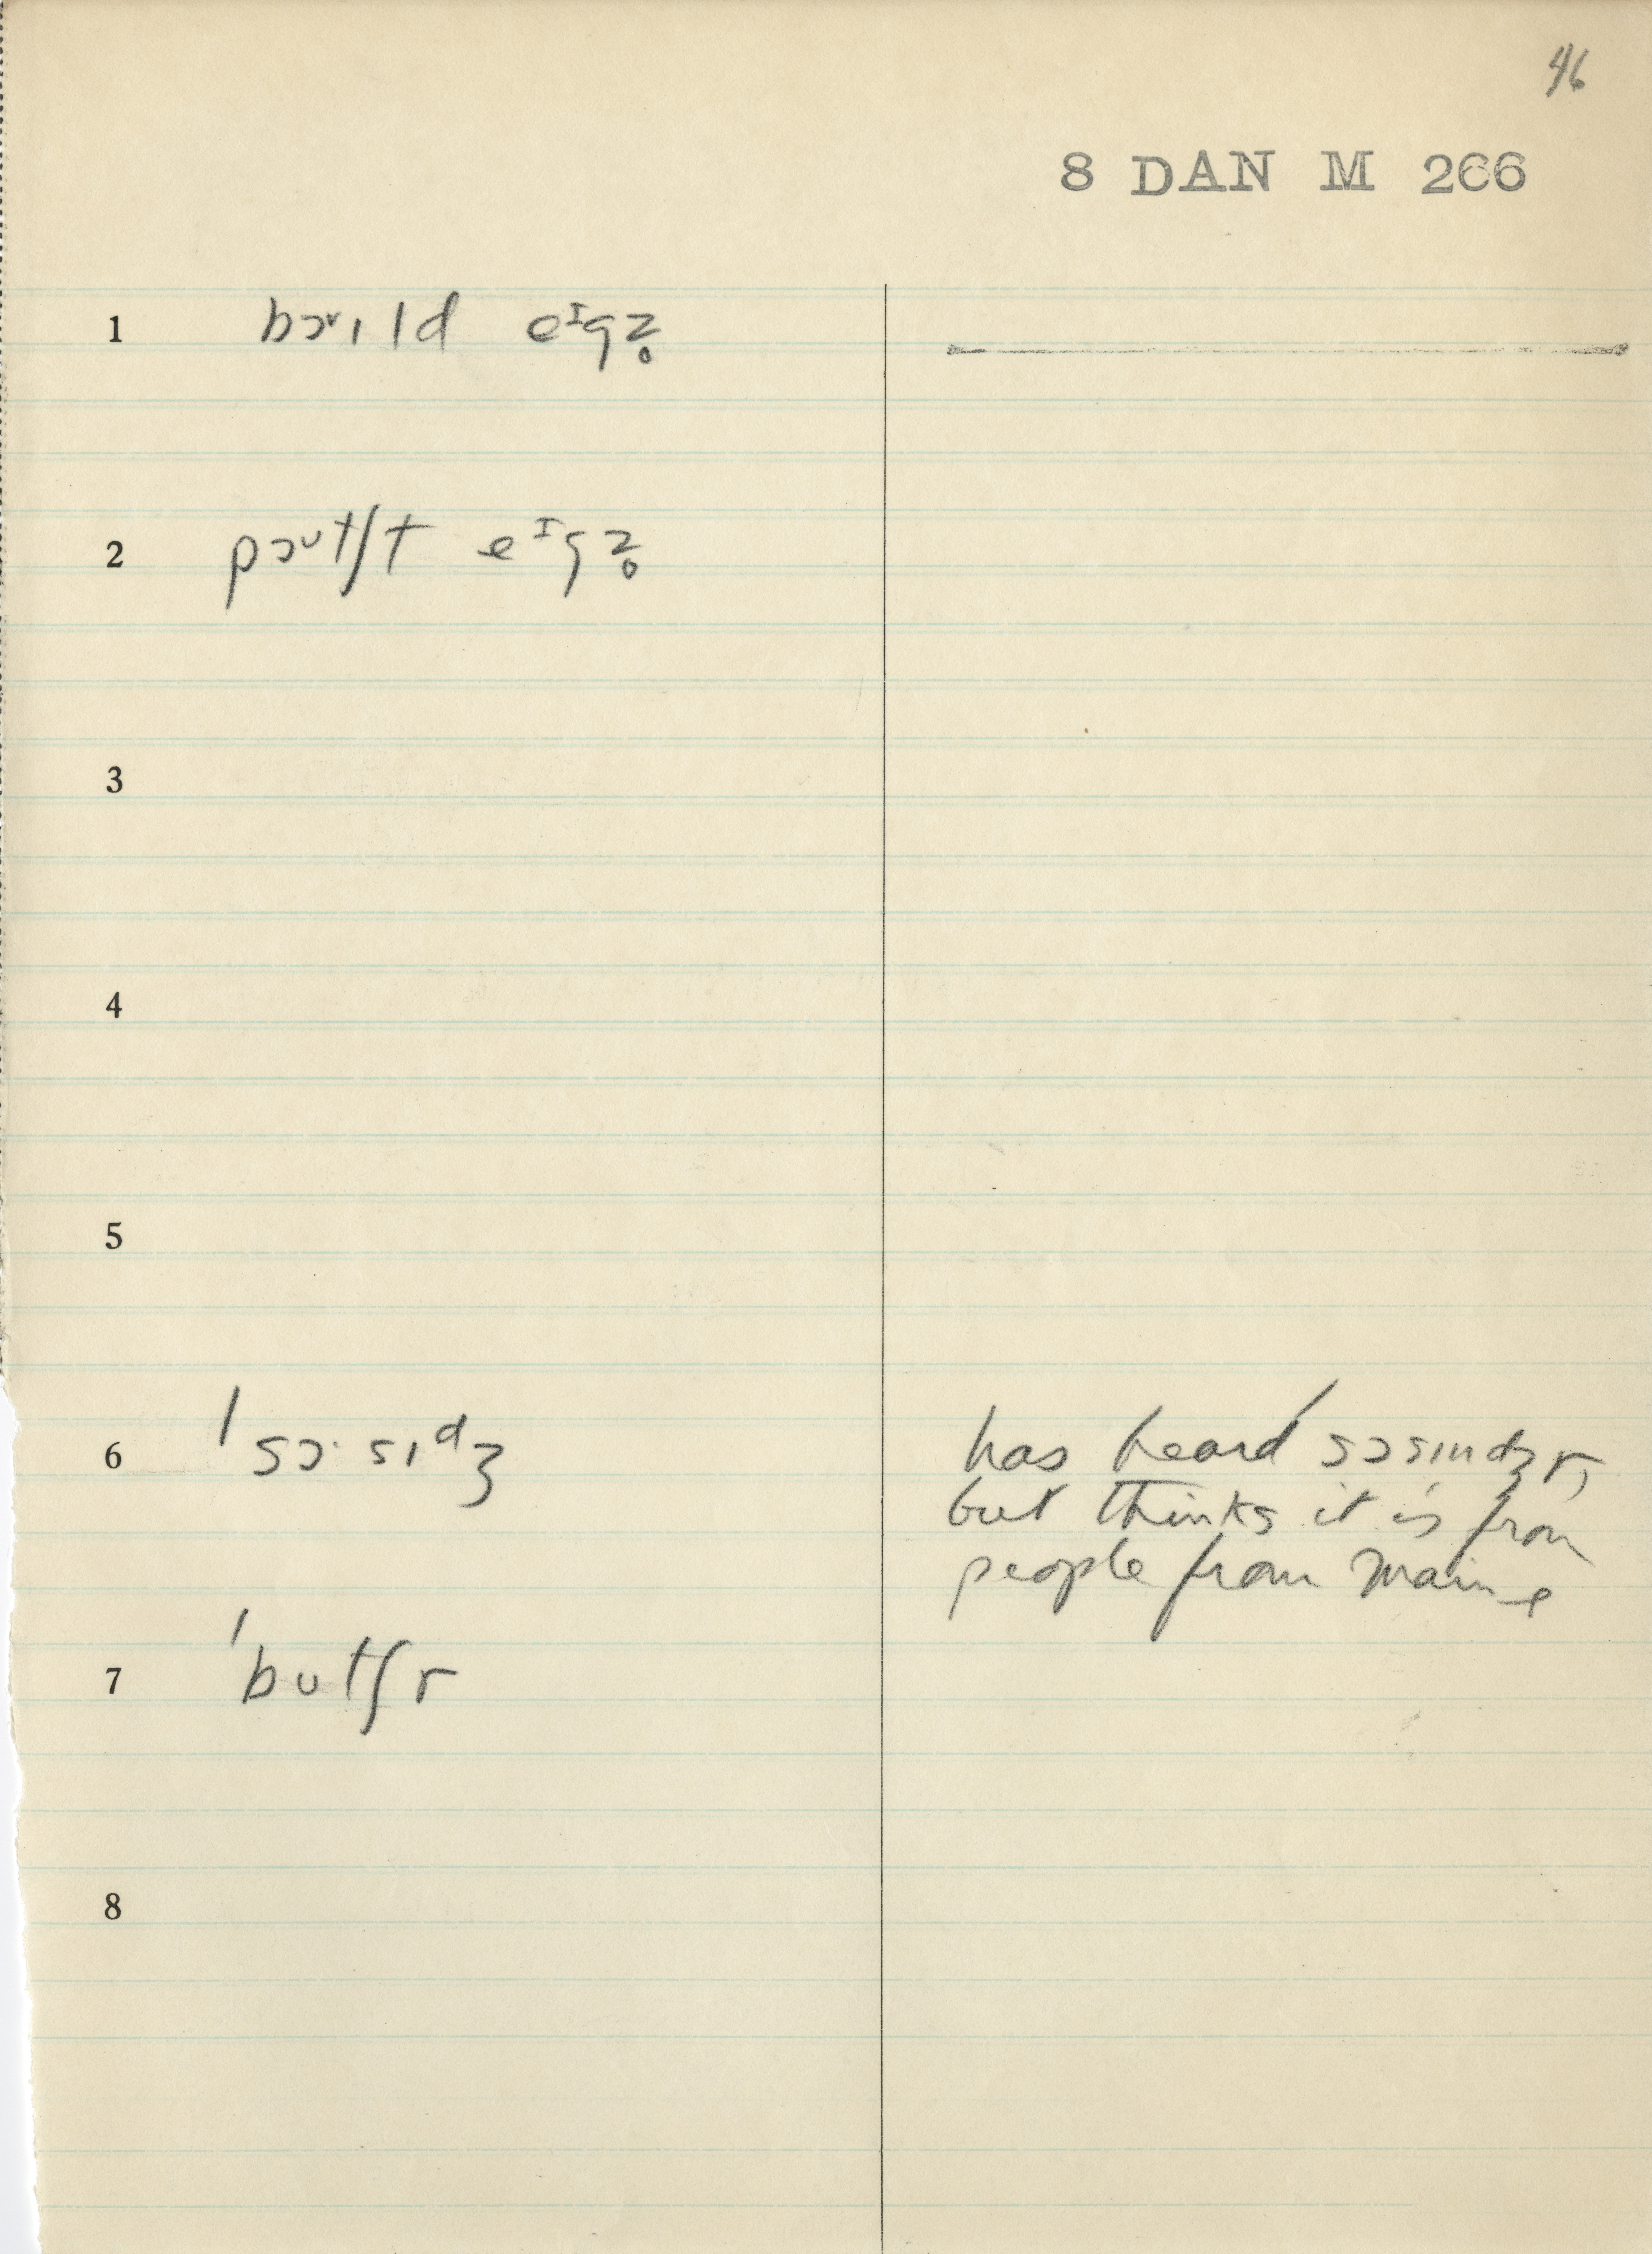 46
8 DAN M 266
1 bɔᶹɪld eᶦgz̥
2 pɔᶷtʃt eᶦgz̥
3
4
5
6 ˈsɔ·sɪᵈʒ
has heard ˈsɔsɪndʒr,
but thinks it is from
people from Maine
7 ˈbutʃr
8